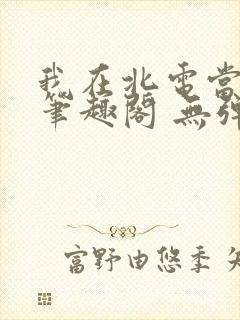 我在北電當
筆趣閣 無彈
富野由悠季 矢